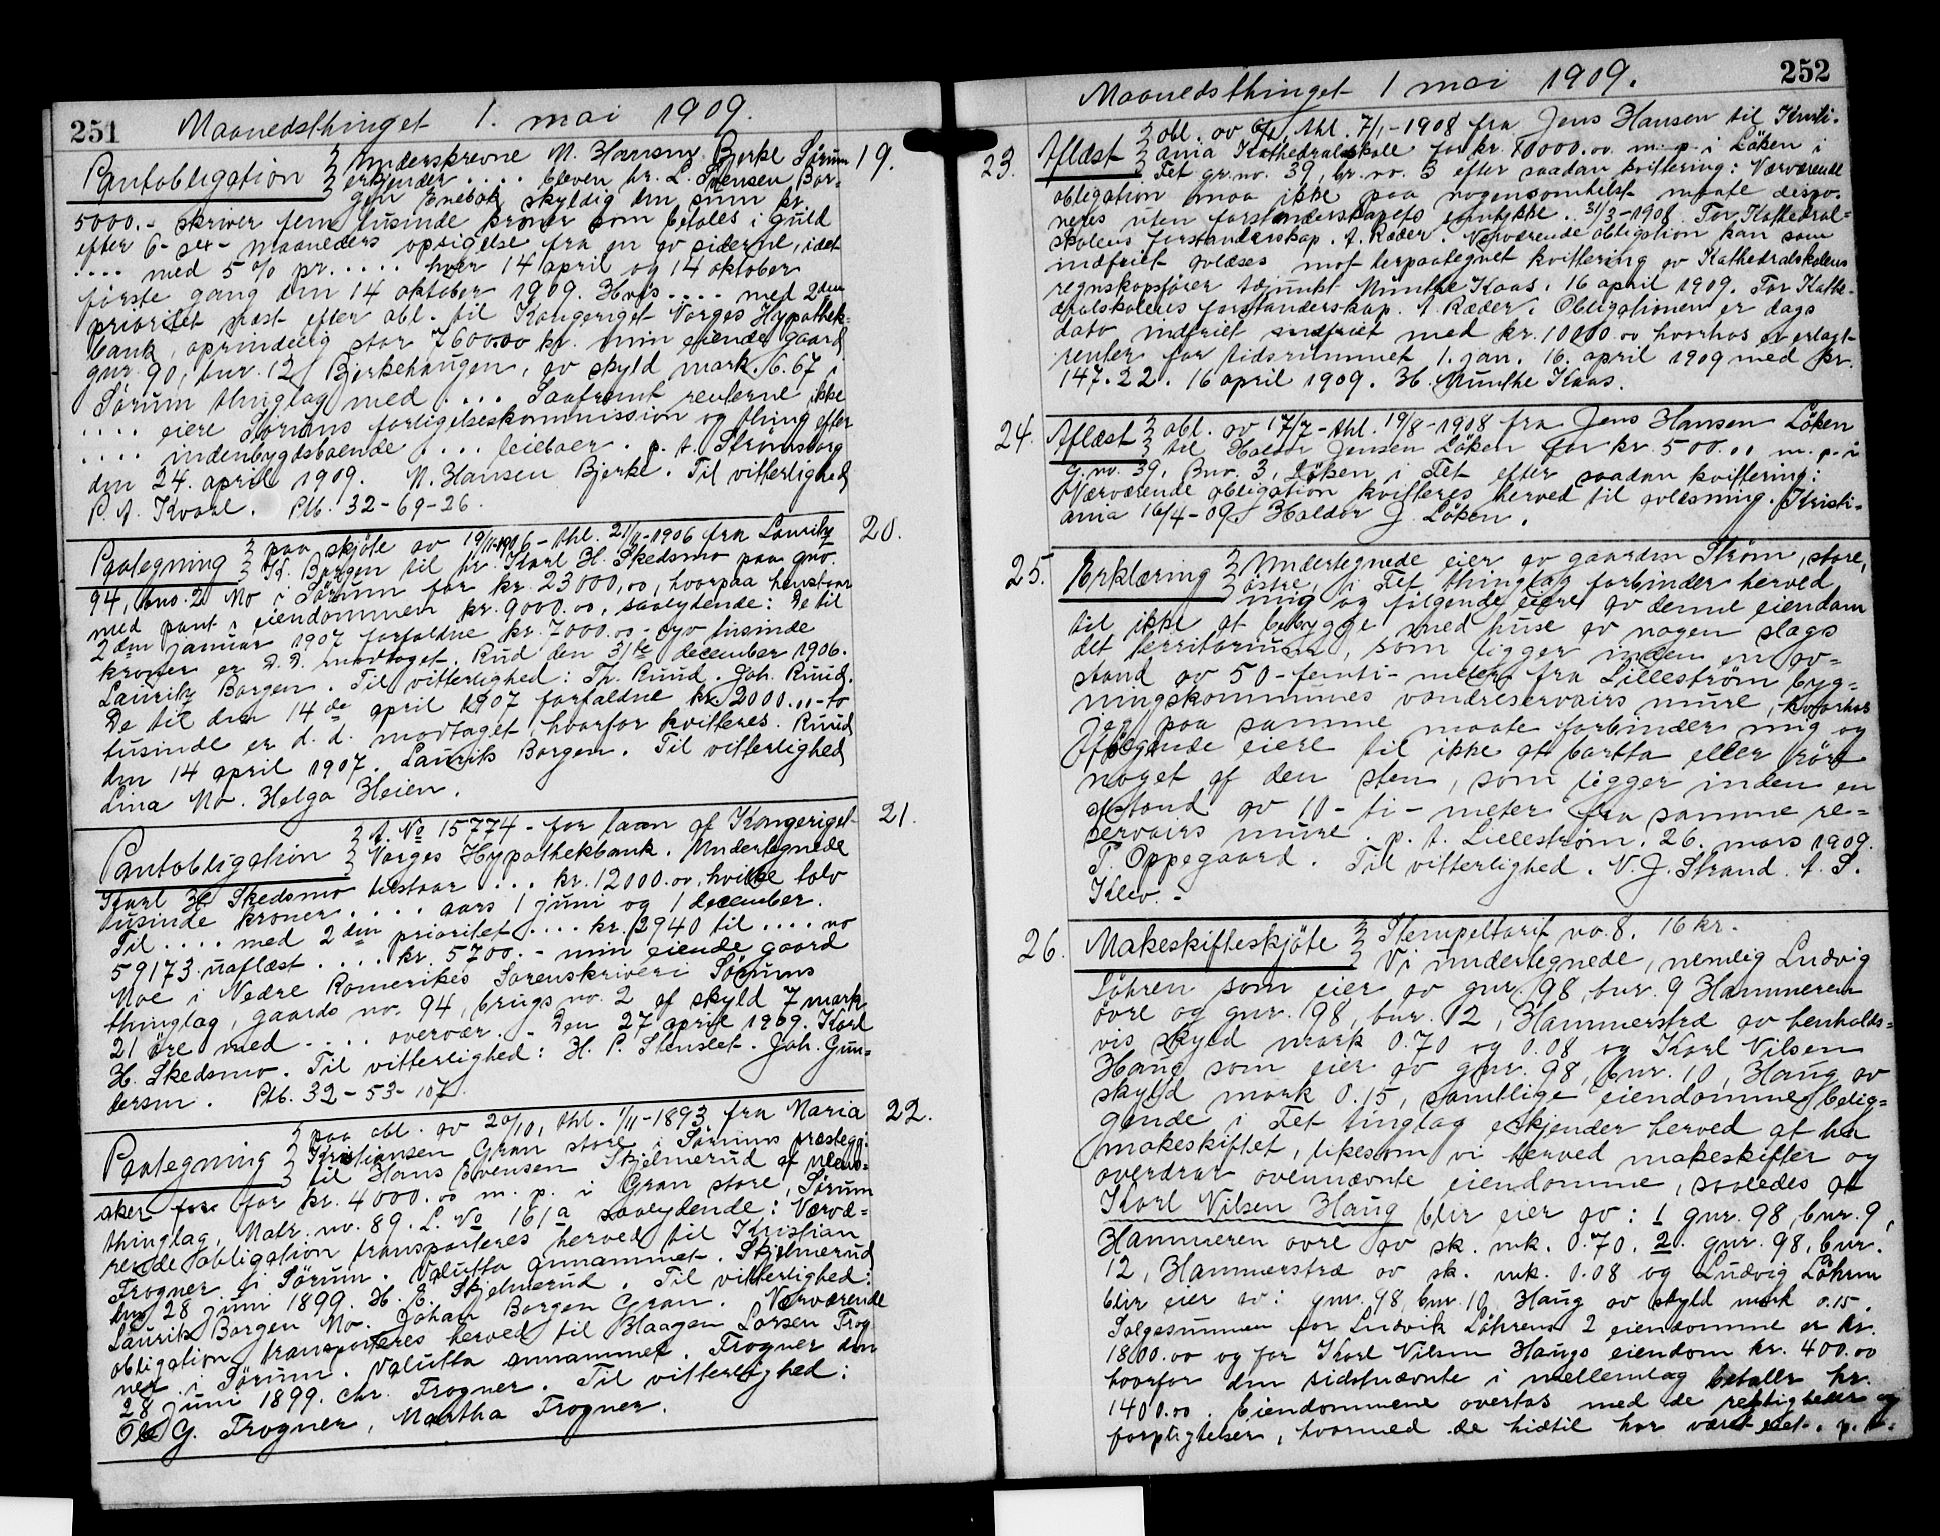 251
Maanedsthinget 1. mai 1909.
Pantobligation Underskrevne N. Hansen Bjerke Sørum 19.
erkjender .... bleven hr. L. Svensen Bor-
gen Enebak skyldig den sum kr.
5000.- skriver fem tusinde kroner som betales i guld
efter 6-sex- maaneders opsigelse fra en av siderne, idet
.... med 5% pr. .... hver 14 april og 14 oktober
første gang den 14 oktober 1909. Hvis .... med 2den
prioritet næst efter obl. til Kongeriget Norges Hypothek-
bank, oprindelig stor 7600.00 kr. min eiende gaard
gnr. 90, bnr. 12 Bjerkehaugen, av skyld mark 6.67 i
Sørum thinglag med .... Saafremt renterne ikke
.... eiere Sørums forligelseskommission og thing efter
.... indenbygdsboende .... leieboer. p. t. Strømsborg
den 24. april 1909. N. Hansen Bjerke. Til vitterlighed
P. A. Kvaal. Ptb. 32-69-26.
Paategning paa skjøte av 19/11-1906 - thl. 21/11-1906 fra Lauritz 20.
K. Borgen til hr. Karl H. Skedsmo paa gno.
94, bno. 2 Mo i Sørum for kr. 23000,00, hvorpaa henstaar
med pant i eiendommen kr. 9000.00, saalydende: De til
2den januar 1907 forfaldne kr. 7000.00 - syv tusinde
kroner er d. d. modtaget. Rud den 31te december 1906.
Lauritz Borgen. Til vitterlighed: Th. Ruud. Joh. Ruud.
De til den 14de april 1907 forfaldne kr. 2000.00 - to
tusinde er d. d. modtaget, hvorfor kvitteres. Ruud
den 14 april 1907. Laurits Borgen. Til vitterlighed
Lina Mo. Helga Heien.
Pantobligation A. No 15774 - for laan af Kongeriget 21.
Norges Hypothekbank. Undertegnede
Karl H. Skedsmo tilstaar ... kr. 12000.00, hvilke tolv
tusinde kroner .... aars 1 juni og 1 december.
Til .... med 2den prioritet .... kr. 2940 til .... no
59173 uaflæst .... kr. 5700.- min eiende gaard
Moe i Nedre Romerikes Sorenskriveri Sørums
thinglag, gaards no. 94, brugs no. 2 af skyld 7 mark
21 øre med .... overvær. - Den 27 april 1909. Karl
H. Skedsmo. Til vitterlighed: H. P. Stenslet. Joh. Gun-
dersen. Ptb. 32-53-107.
Paategning paa obl. av 20/10, thl. 1/11-1893 fra Maria 22.
Kristiansen Gran store i Sørums præstegj.
til Hans Evensen Skjelmerud af
sker for kr. 4000.00 m. p. i Gran store, Sørum
thinglag, Matr. no. 89. L. No 161a saalydende: Nærvæ-
rende obligation transporteres herved til Kristian
Frogner i Sørum. Valutta annammet. Skjelmerud
den 28 juni 1899. H. E. Skjelmerud. Til vitterlighed:
Laurik Borgen Mo. Johan Borgen Gran. Nærværende
obligation transporteres herved til Haagen Larsen Frog
ner i Sørum. Valutta annammet. Frogner den
28 juni 1899. Chr. Frogner. Til vitterlighed:
Ole G. Frogner, Martha Frogner.
252
Maanedsthinget 1 mai 1909.
23. Aflæst obl. av thl. 7/1-1908 fra Jens Hansen til Kristi-
ania Kathedralskole for kr. 10000.00 m. p. i Löken i
Fet gr. no. 39, br. no. 3 efter saadan kvittering: Nærværende
obligation maa ikke paa nogensomhelst maate dispo-
neres uten forstanderskapets samtykke. 31/3-1908. For Kathedral-
skolens forstanderskap. A. Ræder. Nærværende obligation kan som
indfriet avlæses mot herpaategnet kvittering av Kathedralskolens
regnskapsfører adjunkt Munthe Kaas. 16 april 1909. For Kathe-
dralskolens forstanderskap. A. Ræder. Obligationen er dags
dato indfriet indfriet med kr. 10000.00 hvorhos er erlagt
renter for tidsrummet 1. jan. 16. april 1909 med kr.
147.22. 16 april 1909. H. Munthe Kaas.
24. Aflæst obl. av 17/7 - thl. 19/8-1908 fra Jens Hansen Löken
til Haldor Jensen Löken for kr. 500.00 m. p. i
g. no. 39, Bnr. 3, Löken i Fet efter saadan kvittering:
Nærværende obligation kvitteres herved til avlæsning. Kristi-
ania 16/4-09. Haldor J. Löken.
25. Erklæring Undertegnede eier av gaarden Strøm, store,
østre, i Fet thinglag forbinder herved
mig og følgende eiere av denne eiendom
til ikke at bebygge med huse av nogen slags
det territorium, som ligger inden en av-
stand av 50-femti-meter fra Lillestrøm byg-
ningskommunes vandreservairs mure, hvorhos
jeg paa samme maate forbinder mig og
følgende eiere til ikke at bortta eller røre
noget af den sten, som ligger inden en
afstand av 10-ti-meter fra samme re-
servairs mure. p. t. Lillestrøm. 26. mars 1909.
P. Oppegaard. Til vitterlighed. N. J. Strand. A. S.
Klev. -
26. Makeskifteskjöte Stempeltarif no. 8. 16 kr.
Vi undertegnede, nemlig Ludvig
Löhren som eier av gnr. 98, bnr. 9 Hammeren
övre og gnr. 98, bnr. 12, Hammerstræ av henholds-
vis skyld mark 0.70 og 0.08 og Karl Nilsen
Haug som eier av gnr. 98, bnr. 10, Haug av
skyld mark 0.15, samtlige eiendomme belig-
gende i Fet tinglag erkjender herved at ha
makeskiftet, likesom vi herved makeskifter og
overdrar ovennævnte eiendomme, saaledes at
Karl Nilsen Haug blir eier av: 1 gnr. 98, bnr. 9,
Hammeren övre av sk. mk. 0.70. 2. gnr. 98, bnr.
12, Hammerstræ av sk. mk. 0.08 og Ludvig Löhren
blir eier av: gnr. 98, bnr. 10 Haug av skyld mark 0.15.
Salgesummen for Ludvik Löhrens 2 eiendomme er kr.
1800.00 og for Karl Nilsen Haugs eiendom kr. 400.00
hvorfor den sidstnævnte i mellemlag betaler kr.
1400.00. Eiendommene overtas med de rettigheter og
forpligtelser, hvormed de hidtil har været eiet. p. t.